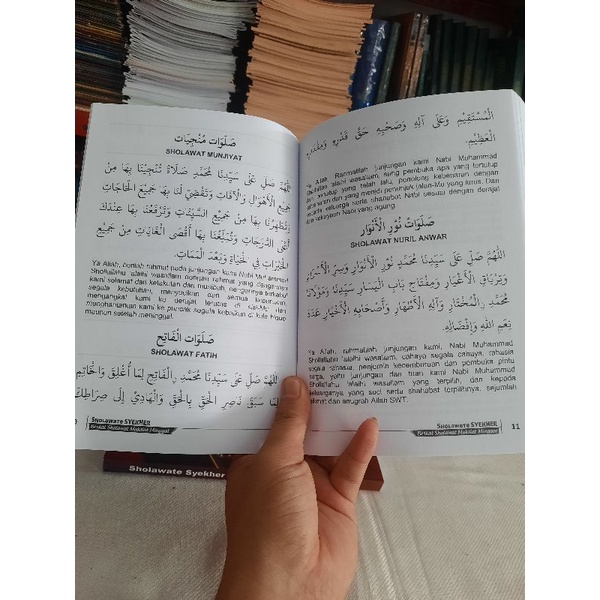 صَلَوَاتْ مُنْجِيَاتْ
SHOLAWAT MUNJIYAT
اَللّٰهُمَّ صَلِّ عَلَى سَيِّدِنَا مُحَمَّدٍ صَلَاةً تُنْجِيْنَا بِهَا مِنْ
جَمِيْعِ الْأَهْوَالِ وَالْآفَاتِ وَتَقْضِيْ لَنَا بِهَا جَمِيْعَ الْحَاجَاتِ
وَتُطَهِّرُنَا بِهَا مِنْ جَمِيْعِ السَّيِّئَاتِ وَتَرْفَعُنَا بِهَا عِنْدَكَ
أَعْلَى الدَّرَجَاتِ وَتُبَلِّغُنَا بِهَا أَقْصَى الْغَايَاتِ مِنْ جَمِيْعِ
الْخَيْرَاتِ فِي الْحَيَاةِ وَبَعْدَ الْمَمَاتِ.
Ya Allah, rahmat pada junjungan kami Nabi Muhammad
Shollallahu 'alaihi wasallam
kami selamat dari
segala kebutuhan, dari semua
mengangkat kami ke derajat
kami ke puncak segala kebaikan di kala hidup
maupun setelah meninggal.
صَلَوَاتْ الْفَاتِحْ
SHOLAWAT FATIH
اَللّٰهُمَّ صَلِّ عَلَى سَيِّدِنَا مُحَمَّدٍ ࣙالْفَاتِحِ لِمَا أُغْلِقَ وَالْخَاتِمِ
لِمَا سَبَقَ نَاصِرِ الْحَقِّ بِالْحَقِّ وَالْهَادِيْ إِلَى صِرَاطِكَ
SHOLAWATE SYEKHER
Berkat Sholawat Mukidat Minggat
الْمُسْتَقِيْمِ وَعَلَى آلِهِ وَصَحْبِهِ حَقَّ قَدْرِهِ وَمِقْدَارِهِ
الْعَظِيْمِ.
Ya Allah, Rahmatilah junjungan kami Nabi Muhammad
Shollallahu 'alaihi wasallam, sang pembuka apa yang tertutup
dan yang telah lalu, penolong kebenaran dengan
kebenaran dan yang memberi petunjuk jalan-Mu yang lurus. Dan
kepada keluarga serta shahabat Nabi sesuai dengan derajat
dan kekuasaan Nabi yang agung.
صَلَوَاتْ نُوْرِ الْأَنْوَارْ
SHOLAWAT NURIL ANWAR
اَللّٰهُمَّ صَلِّ عَلَى سَيِّدِنَا مُحَمَّدٍ نُوْرِ الْأَنْوَارِ وَسِرِّ الْأَسْرَارِ
وَتِرْيَاقِ الْأَغْيَارِ وَمِفْتَاحِ بَابِ الْيَسَارِ سَيِّدِنَا وَمَوْلَانَا
مُحَمَّدٍ ࣙالْمُخْتَارِ وَآلِهِ الْأَطْهَارِ وَأَصْحَابِهِ الْأَخْيَارِ عَدَدَ
نِعَمِ اللهِ وَإِفْضَالِهِ.
Ya Allah, rahmatilah junjungan kami, Nabi Muhammad
Shollallahu 'alaihi wasallam, cahaya segala cahaya, rahasia
segala rahasia, dan pembuka pintu
yaitu junjungan dan tuan kami Nabi Muhammad
Shollallahu 'alaihi wasallam yang terpilih, dan kepada
keluarganya yang suci serta shahabat terpilihnya, sejumlah
nikmat dan anugrah Allah SWT.
SHOLAWATE SYEKHER
Berkat Sholawat Mukidat Minggat
11
Sholawate Syekher